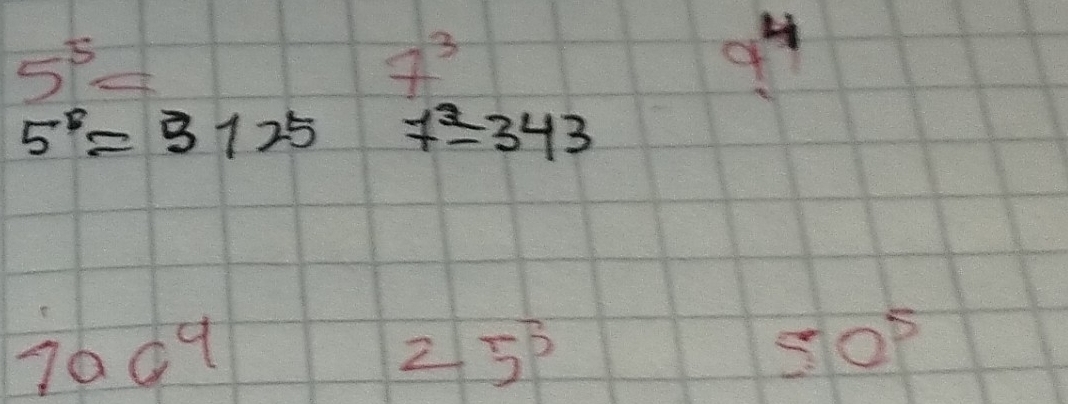 5⁵= 7³ 9⁴
5⁵= 3125 7³=343
100⁴ 25³ 50⁵